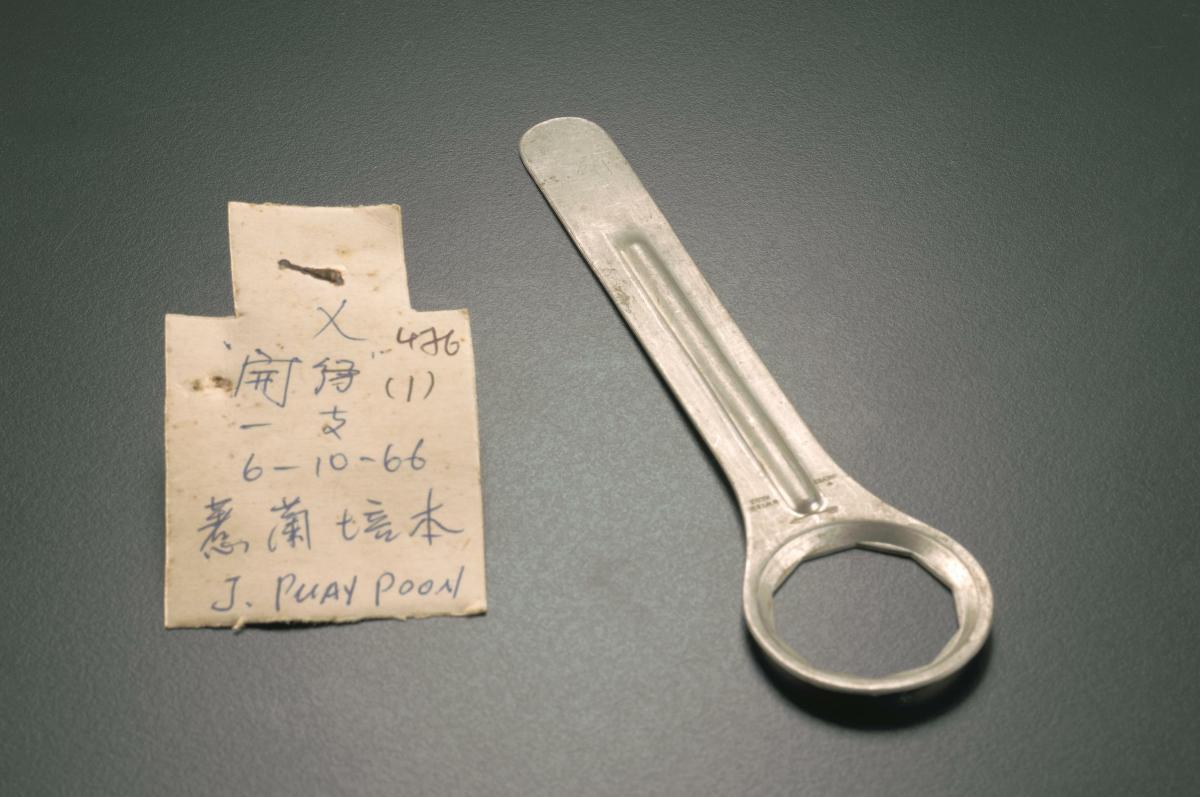 X
476
"開得" (1)
一支
6-10-66
蕙蘭培本
J. PUAY POON